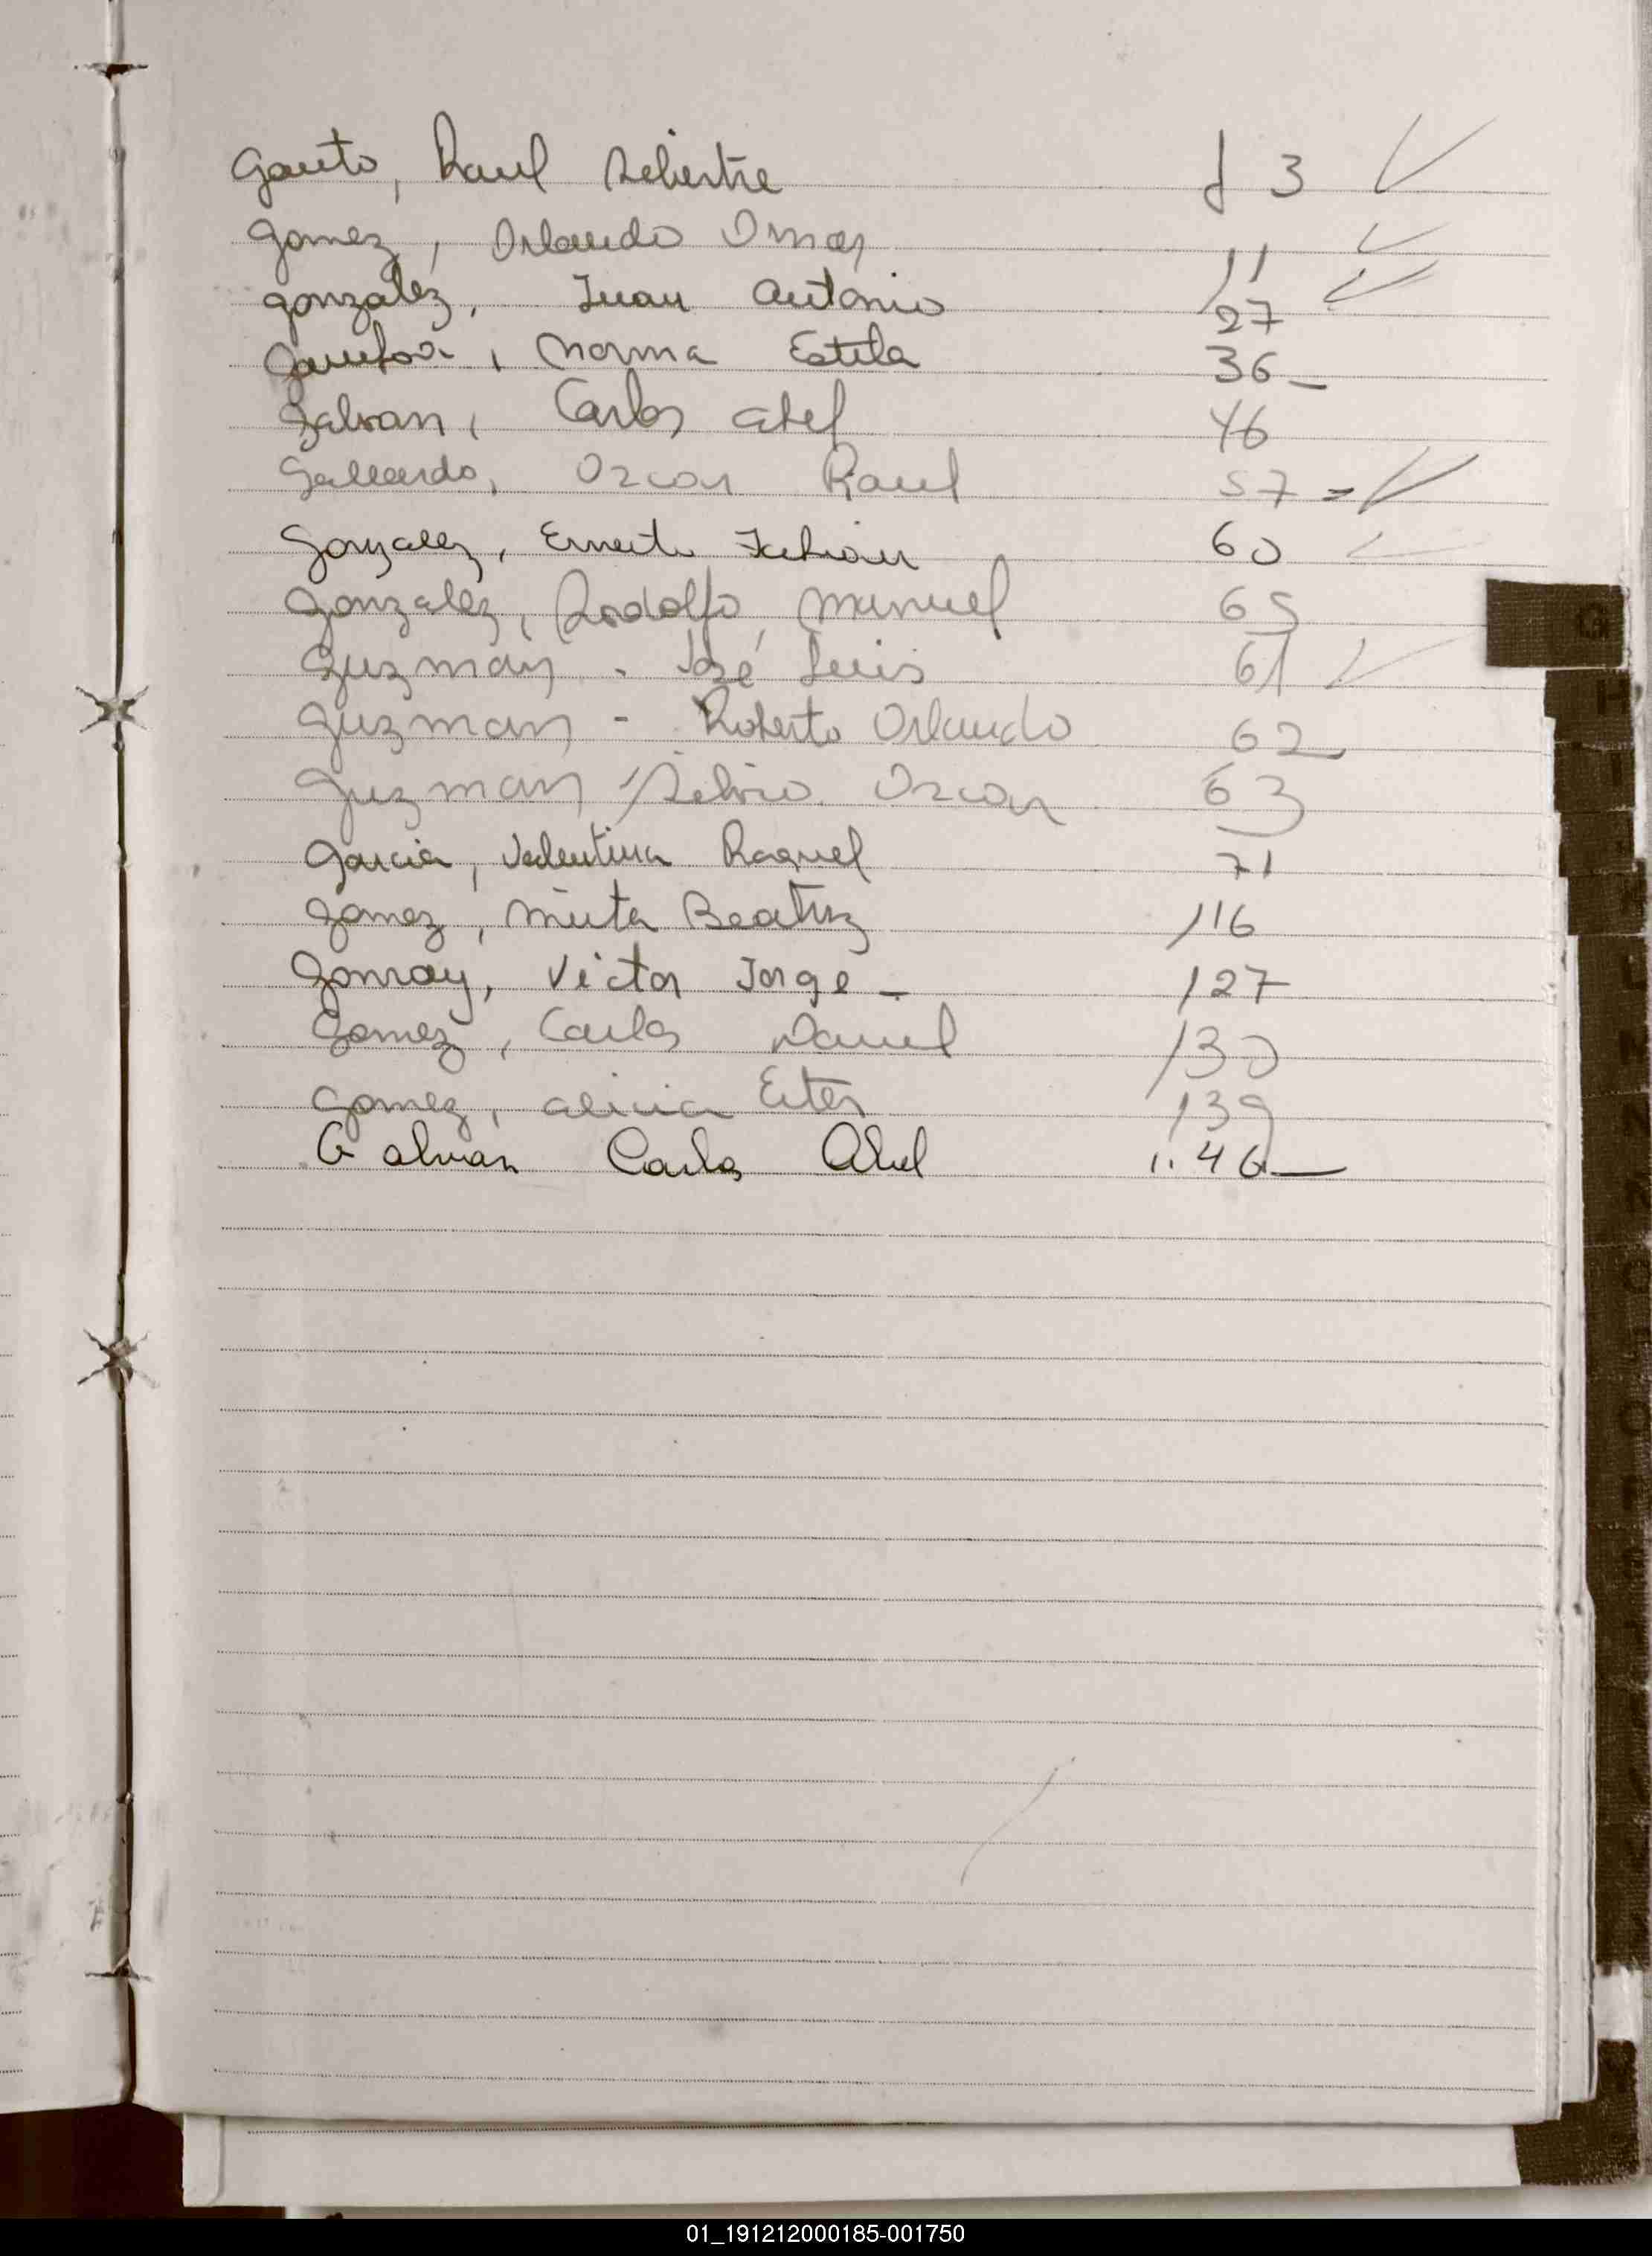 Gauto, Raul Silvestre f 3
Gomez, Orlando Omar 11
Gonzalez, Juan Antonio 27
Norma Estela 36_
Galvan, Carlos Abel 46
Gallardo, Ozcar Raul 57 =
Gonzalez, Ernesto Fabian 60
Gonzalez, Rodolfo, Manuel 65
Guzman - José Luis 61
Guzman - Roberto Orlando 62
Guzman Silvio Ozcar 63
Garcia, Valentina Raquel 71
Gomez, Mirta Beatriz 116
Gonray, Victor Jorge - 127
Gomez, Carlos Daniel 130
Gomez, Alicia Ester 139
Galvan Carlos Abel 46_
G
H
01_191212000185-001750